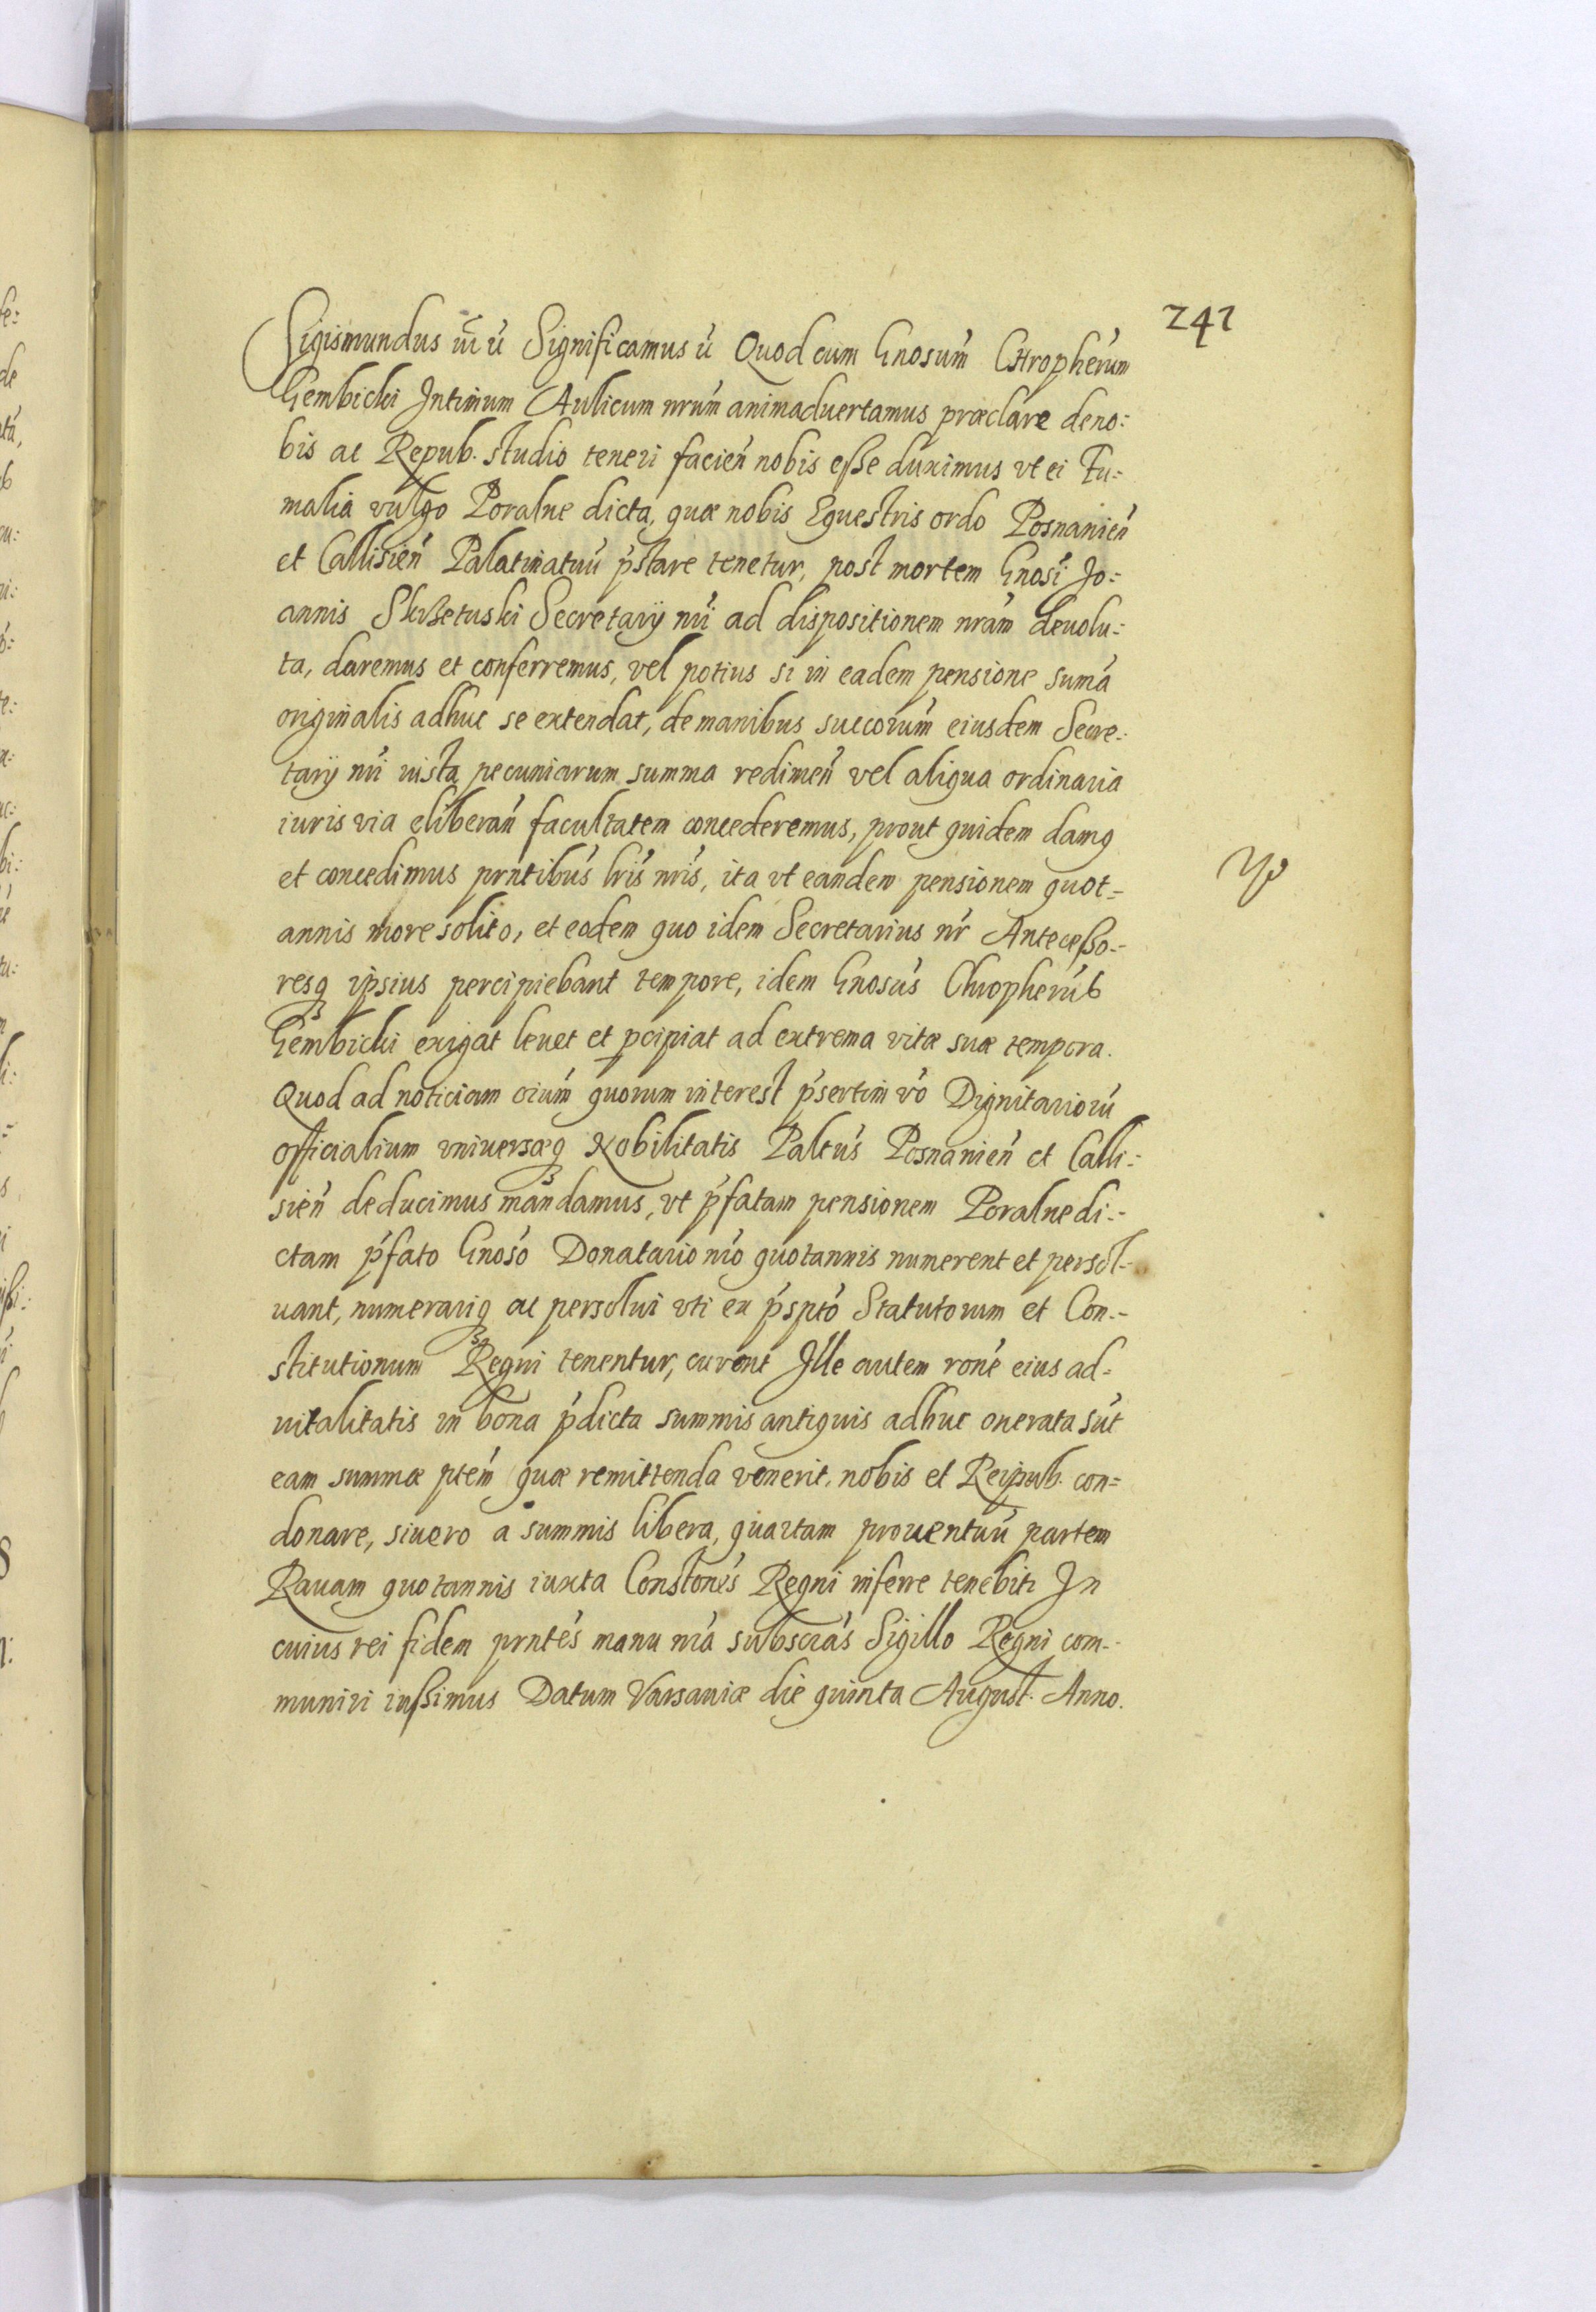 241
Sigismundus iīi ū Significamus ū Quod cum Gnosum̄ CHropherum̄
Gembicki Intimum Aulicum nrum̄ animaduertamus præclare deno:
bis ac Repub. studio teneri facień nobis eße duximus vt ei Fu:
malia vulgo Poralne dicta, quæ nobis Equestris ordo Posnanień
et Callisień Palatinatuū p̄stare tenetur, post mortem Gnosi̇̄ Jo:
annis Skrzetuski Secretarij nri̇̄ ad dispositionem nram̄ deuolu:
ta, daremus et conferremus, vel potius si in eadem pensione sumā
originalis adhuc se extendat, de manibus succorum̄ eiusdem Secre:
tarij nri̇̄ iusta pecuniarum summa redimeń vel aliqua ordinaria
iuris via eliberań facultatem concederemus, prout quidem damꝯ
et concedimus prntibus̄ lris̄ nris̄, ita vt eandem pensionem quot=
annis more solito, et eodem quo idem Secretarius nr̄ Anteceßo:
resqꝫ ipsius percipiebant tempore, idem Gnosus̄ Chropherus̄
Gembicki exigat leuet et ꝑcipiat ad extrema vitæ suæ tempora.
Quod ad noticiam oium̄ quorum interest p̄sertim vō Dignitarioru̅
officialium vniversæqꝫ Nobilitatis Paltus̄ Posnanień et Calli:
sień deducimus mandamus, vt p̄fatam pensionem Poralne di:
ctam p̄fato Gnosō Donatario nrō quotannis numerent et persol-
uant, numerariqꝫ ac persolui vti ex p̄sptō Statutorum et Con:
stitutionum Regni tenentur, curent Ille autem ronē eius ad-
uitalitatis in bona p̄dicta summis antiquis adhuc onerata sūt
eam summæ ptem̄ quæ remittenda venerit, nobis et Reipub. con=
donare, si vero a summis libera, quartam prouentuū partem
Rauam quotannis iuxta Constones̄ Regni inferre tenebitr In
cuius rei fidem prntes̄ manu nrā subscras̄ Sigillo Regni com-
muniri iußimus Datum Varsauiæ die quinta August. Anno.